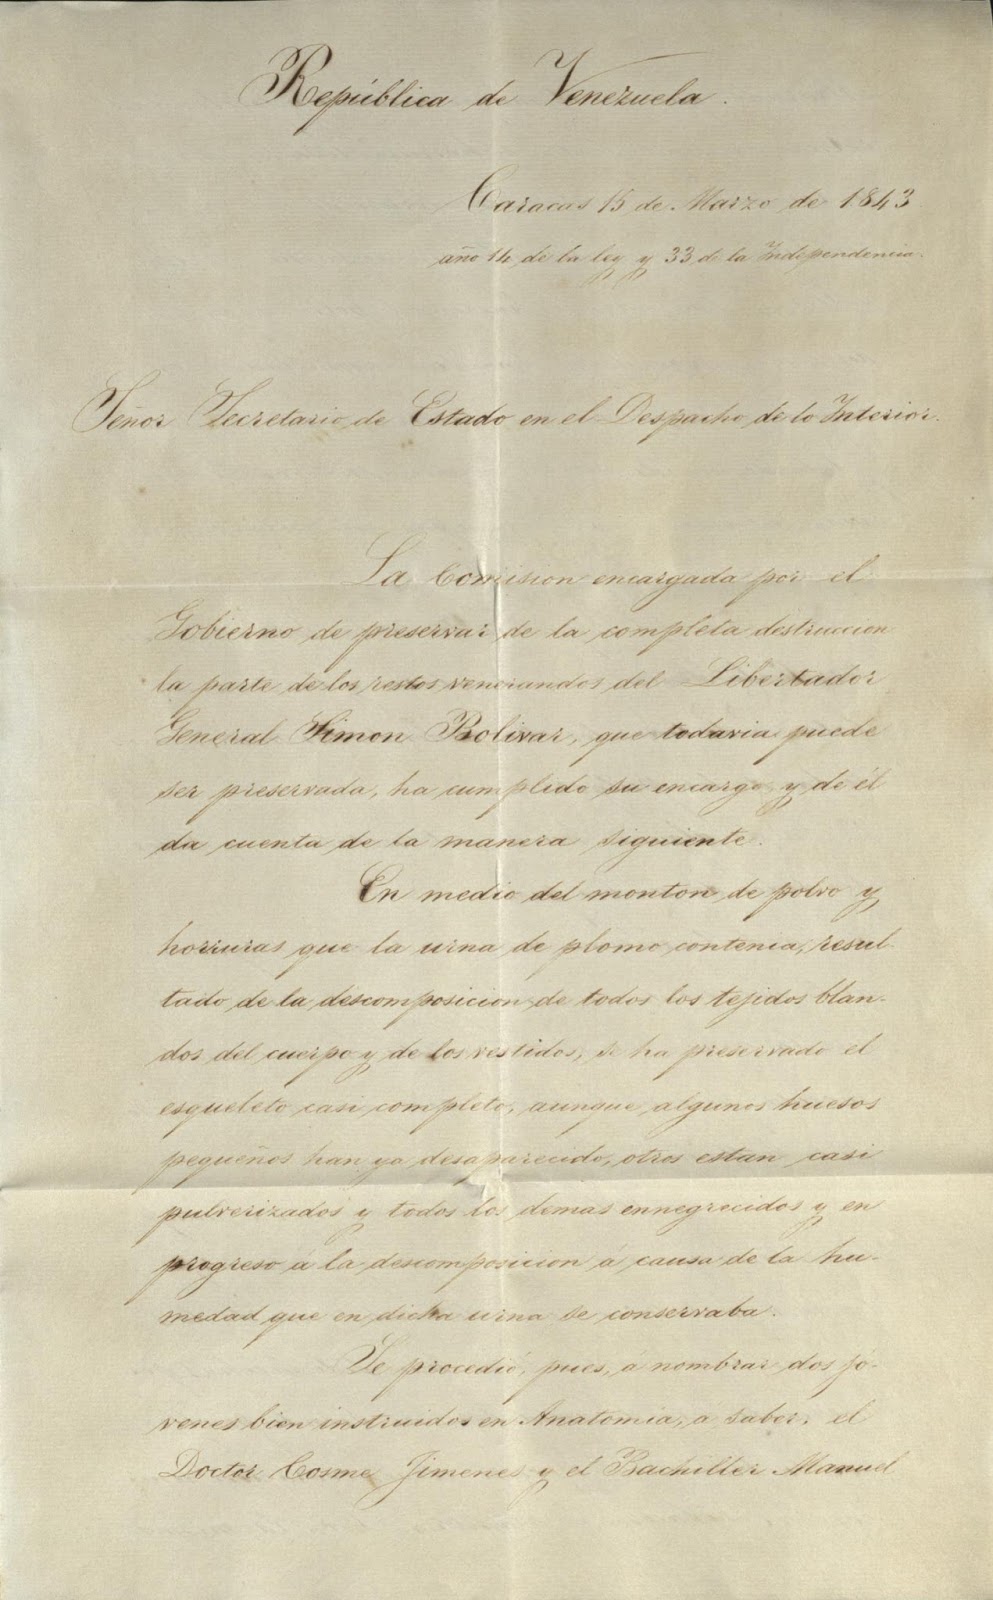 República de Venezuela.
Caracas 15 de Marzo de 1843
año 14 de la ley y 33 de la Independencia.
Señor Secretario de Estado en el Despacho de lo Interior.
La Comision encargada por el
Gobierno de preservar de la completa destruccion
la parte de los restos venerandos del Libertador
General Simon Bolivar, que todavia puede
ser preservada, ha cumplido su encargo y de él
da cuenta de la manera siguiente.
En medio del monton de polvo y
horruras que la urna de plomo contenia, resul-
tado de la descomposicion de todos los tejidos blan-
dos del cuerpo y de los vestidos, se ha preservado el
esqueleto casi completo, aunque algunos huesos
pequeños han ya desaparecido, otros estan casi
pulverizados y todos los demas ennegrecidos y en
progreso á la descomposicion á causa de la hu-
medad que en dicha urna se conservaba.
Se procedió, pues, á nombrar dos jó-
venes bien instruidos en Anatomia, a saber, el
Doctor Cosme Jimenes y el Bachiller Manuel